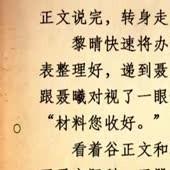 正文说完，转身走
黎晴快速将办
表整理好，递到聂
跟聂曦对视了一眼
“材料您收好。”
看着谷正文和